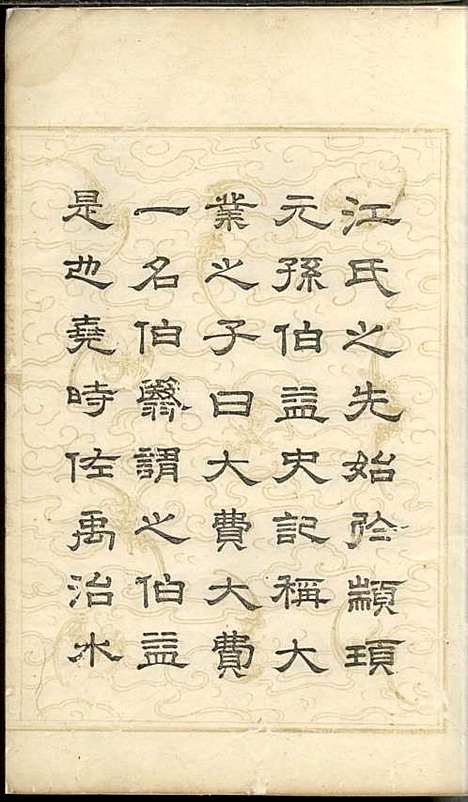 江氏之先始於顓頊
元孫伯益史記稱大
業之子曰大費大費
一名伯翳謂之伯益
是也堯時佐禹治水